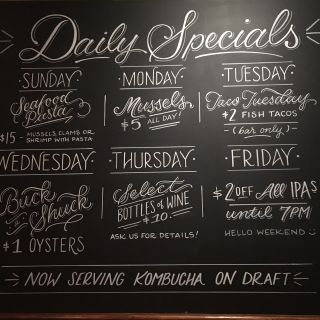 Daily Specials
SUNDAY
Seafood
Pasta
$15 - MUSSELS, CLAMS OR
SHRIMP WITH PASTA
MONDAY
Mussels
$5 ALL DAY!
TUESDAY
Taco Tuesday
$2 FISH TACOS
(bar only)
WEDNESDAY
Buck
Shuck
$1 OYSTERS
THURSDAY
Select
BOTTLES OF WINE
$10
ASK US FOR DETAILS!
FRIDAY
$2 OFF All IPAs
until 7PM
HELLO WEEKEND
NOW SERVING KOMBUCHA ON DRAFT